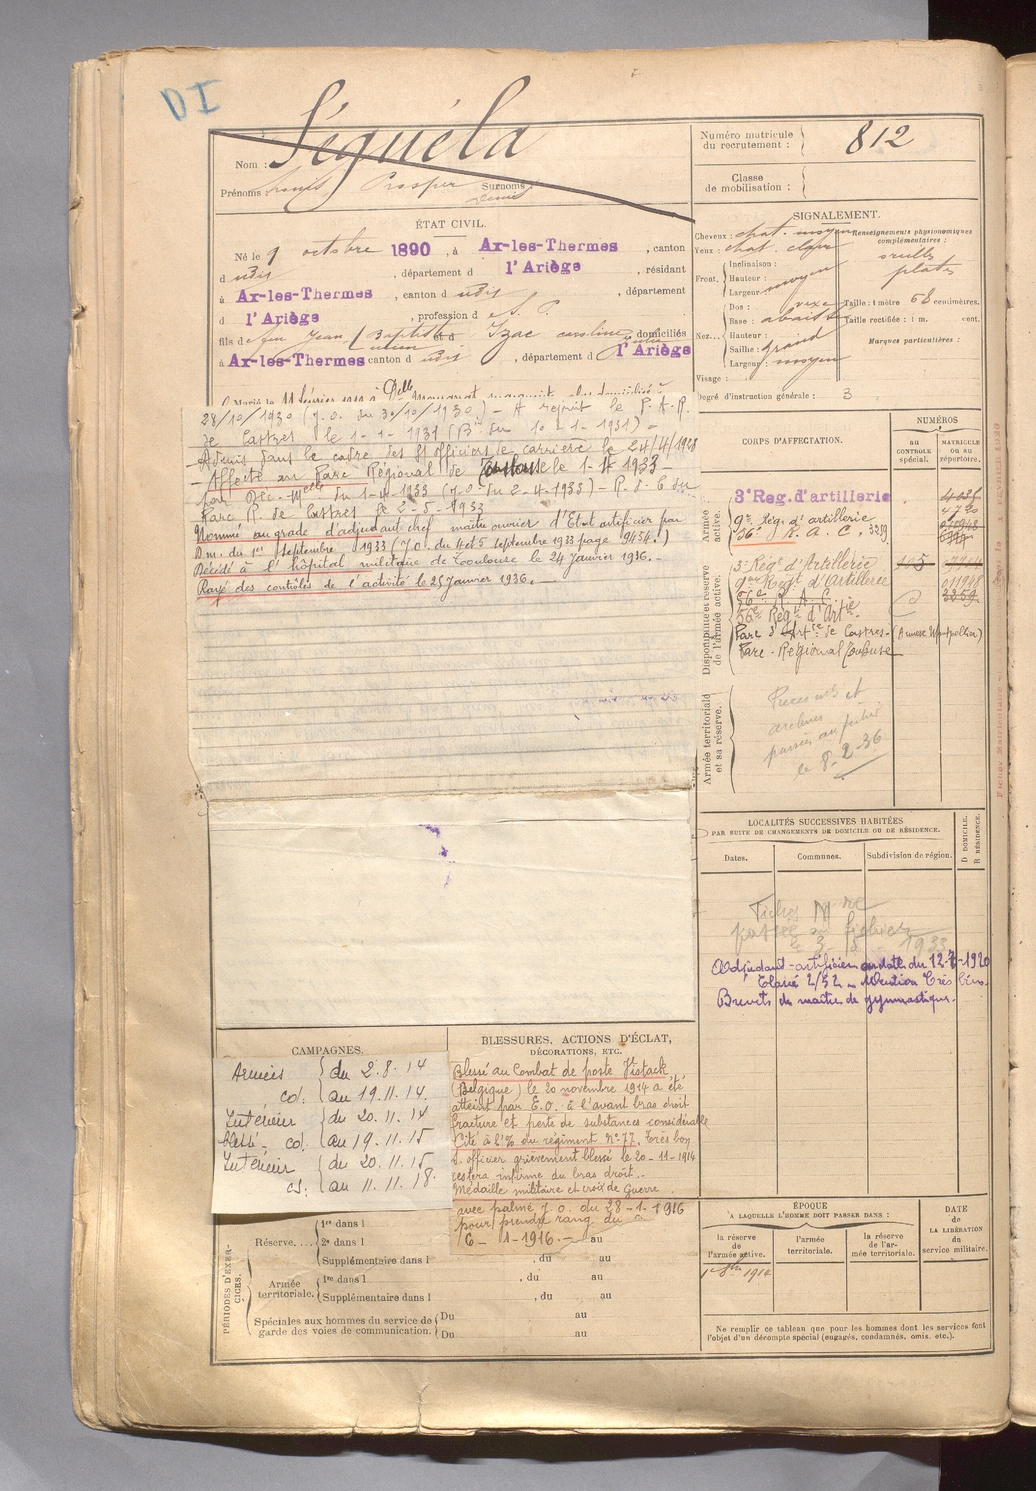 DI
Séguéla
Nom :
Prénoms : Louis Prosper Surnoms : Denis
Numéro matricule du recrutement : 812
Classe de mobilisation :
ÉTAT CIVIL.
Né le 9 octobre 1890, à Ax-les-Thermes, canton
d udit, département d l'Ariège, résidant
à Ax-les-Thermes, canton d udit, département
d l'Ariège, profession de S. P.
fils de feu Jean Baptiste et d Izac caroline domiciliés
à Ax-les-Thermes canton d udit, département d l'Ariège
28/10/1930 (J.O. du 30/10/1930) – A rejoint le P.A.R.
de Castres le 1-1-1931 (Bin du 10-1-1931) –
Admis dans le cadre des ss officiers de carrière le 24/4/1928
– Affecté au Parc Régional de Toulouse le 1-4-1933 –
par Déc. Melle du 1-4-1933 (J.O. du 2-4-1933) – R. d. C du
Parc R. de Castres le 2-5-1933
Nommé au grade d'adjudant chef maître ouvrier d'Etat artificier par
D.m. du 1er septembre 1933 (J.O. du 4 et 5 septembre 1933 page 9454.)
Décédé à l'hôpital militaire de Toulouse le 24 Janvier 1936. –
Rayé des contrôles de l'activité le 25 Janvier 1936. –
SIGNALEMENT.
Cheveux : chat. moyen
Yeux : chat. clair
Front. Inclinaison :
Hauteur : moyen
Largeur :
Nez... Dos : vexe
Base : abaissé
Hauteur :
Saillie : grand
Largeur : moyen
Visage :
Renseignements physionomiques complémentaires :
oreilles
plates
Taille : 1 mètre 68 centimètres.
Taille rectifiée : 1 m. cent.
Marques particulières :
Degré d'instruction générale : 3
CORPS D'AFFECTATION.
NUMÉROS
au CONTRÔLE spécial.
MATRICULE ou au répertoire.
Armée active.
3e Reg. d'artillerie
9e Rég. d'artillerie
56e R. A. C. 3259
Disponibilité et réserve de l'armée active.
3e Régt d'Artillerie
9me Régt d'Artillerie
56e R. A. C. 3259
56e Rég. d'Artie
011948
Parc d'Artie de Castres – (Annexe Montpellier)
Parc – Régional Toulouse
Armée territoriale et sa réserve.
archives
le 8-2-36
LOCALITÉS SUCCESSIVES HABITÉES
PAR SUITE DE CHANGEMENTS DE DOMICILE OU DE RÉSIDENCE.
Dates.
Communes.
Subdivision de région.
D DOMICILE. R RÉSIDENCE.
1933
Adjudant-artificier en date du 12-7-1920
Classé 2/52 – Mention Très bien.
Brevets de maître de gymnastique.
CAMPAGNES.
Armées du 2.8.14
cd. au 19.11.14.
Intérieur du 20.11.14
blessé – cd. au 19.11.15
Intérieur du 20.11.15
cs. au 11.11.18.
BLESSURES, ACTIONS D'ÉCLAT,
DÉCORATIONS, ETC.
Blessé au Combat de poste
(Belgique) le 20 novembre 1914 a été
atteint par E.O. à l'avant bras droit
fracture et perte de substances considérable
Cité à l'O/ du régiment No 77, très bon
s. officier grièvement blessé le 20-11-1914
restera infirme du bras droit..
Médaille militaire et croix de Guerre
avec palme J.O. du 28-1-1916
pour prendre rang du
6 – 1-1916. – au
PÉRIODES D'EXERCICES.
Réserve....
1re dans l
2e dans l
Supplémentaire dans l , du au
Armée territoriale.
1re dans l , du au
Supplémentaire dans l , du au
Spéciales aux hommes du service de garde des voies de communication.
Du au
Du au
ÉPOQUE
À LAQUELLE L'HOMME DOIT PASSER DANS :
la réserve de l'armée active.
l'armée territoriale.
la réserve de l'armée territoriale.
DATE de LA LIBÉRATION du service militaire.
Ne remplir ce tableau que pour les hommes dont les services font
l'objet d'un décompte spécial (engagés, condamnés, omis, etc.).